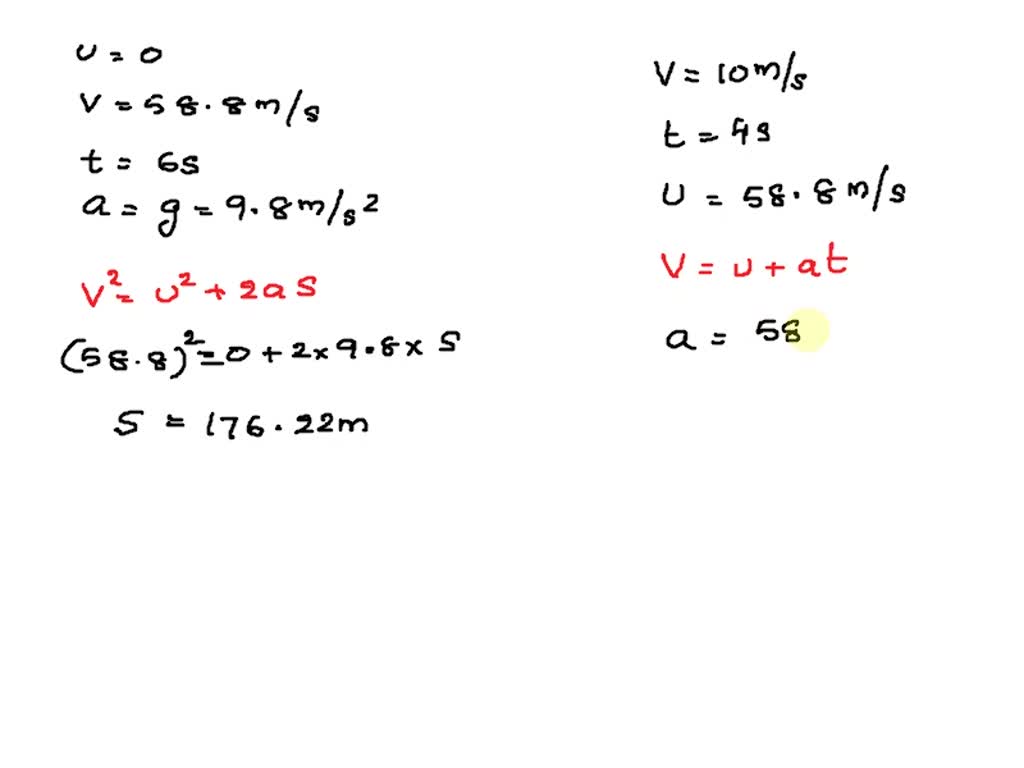 u = 0
v = 58.8m/s
t = 6s
a = g = 9.8m/s2
v² = u² + 2as
(58.8)² = 0 + 2×9.8× s
s = 176.22m
v = 10m/s
t = 4s
u = 58.8m/s
v = u + at
a = 58